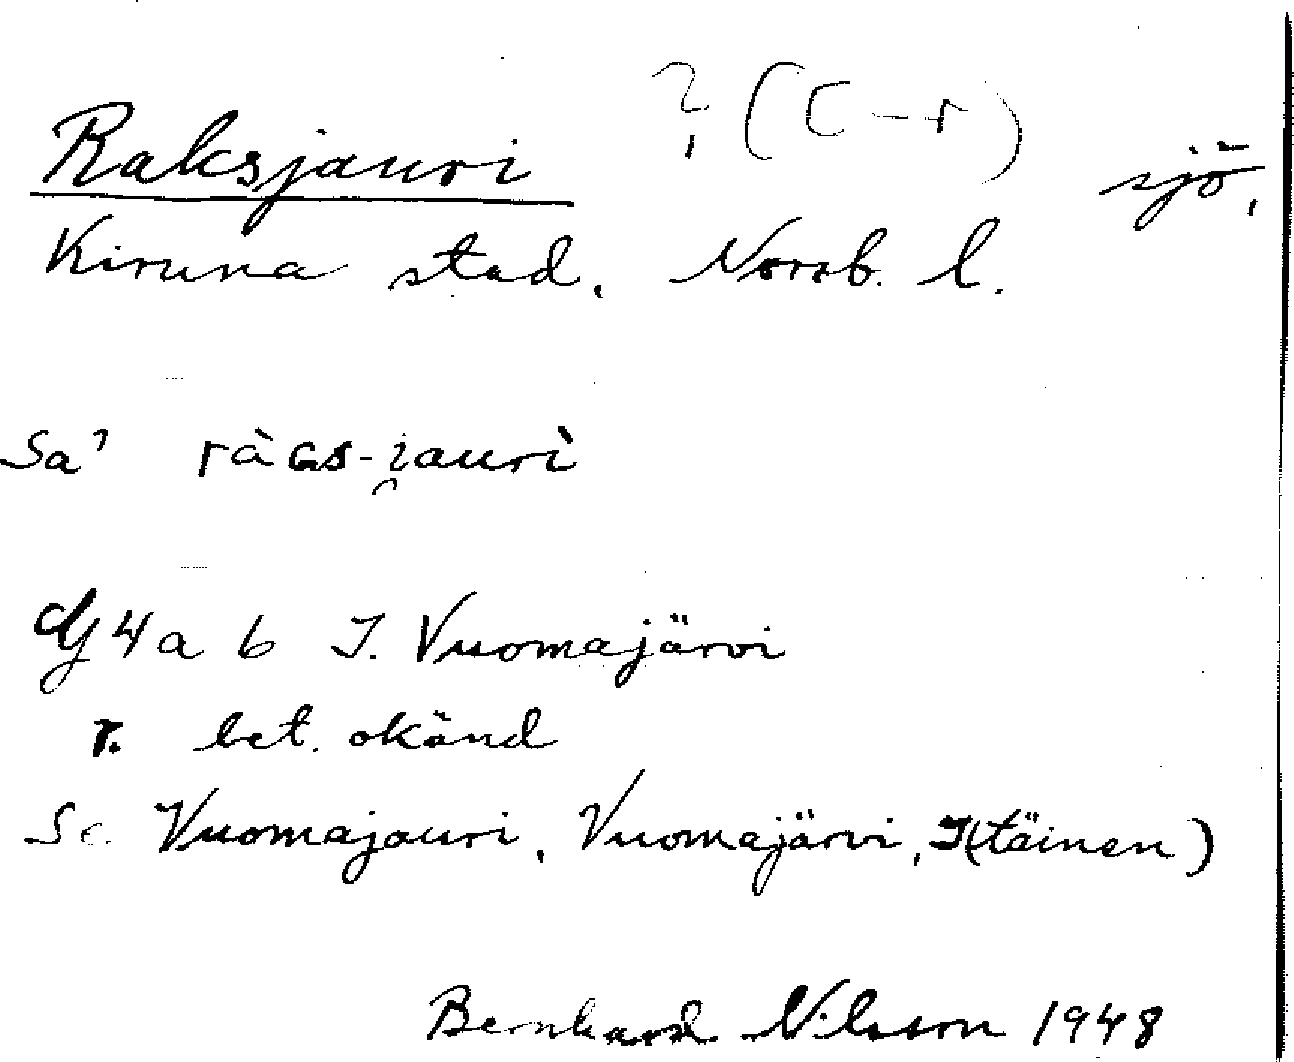 Raksjauri ? (C-r) sjö,
Kiruna stad, Norrb. l.
Sa' ràɢs-i̯auri̇̀
Gj 4a b I. Vuomajärvi
r. bet. okänd
Se. Vuomajauri, Vuomajärvi, I(täinen)
Bernhard Nilsson 1948